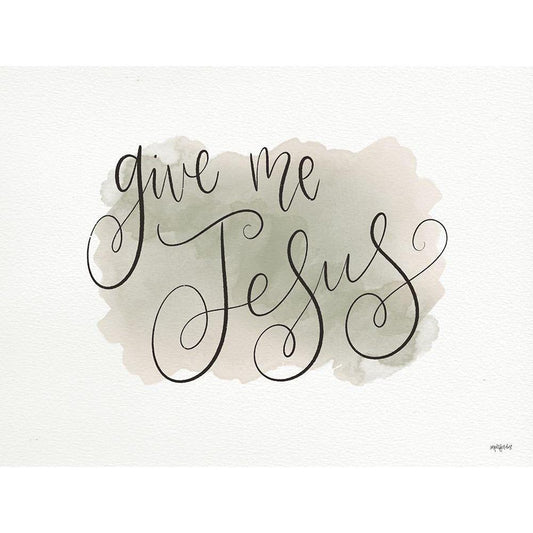 give me
Jesus